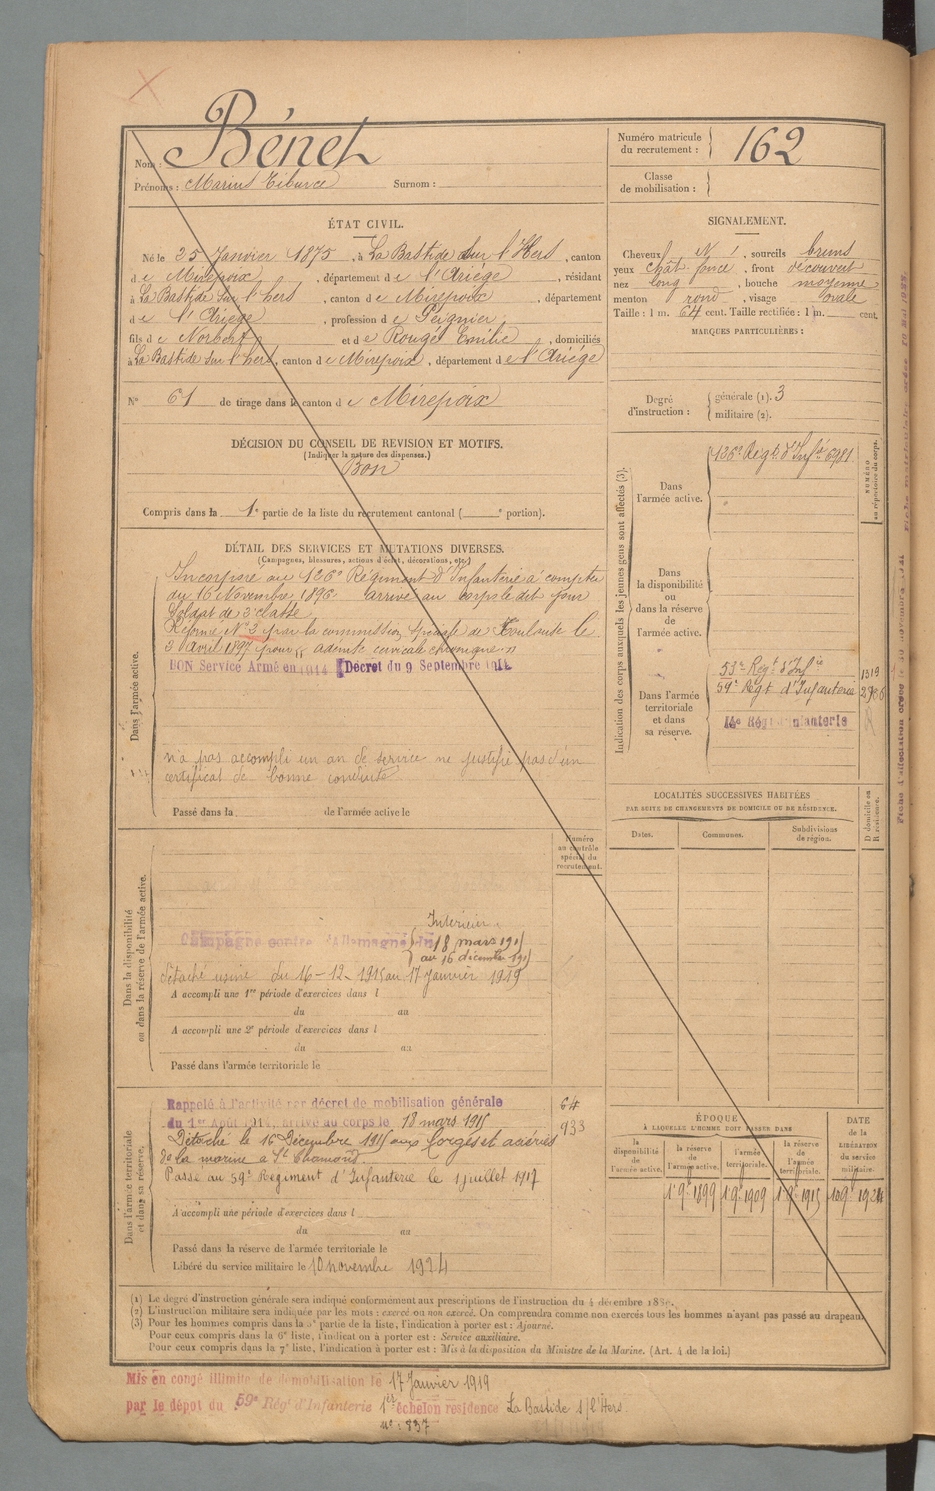 Nom : Bénet
Prénoms : Marius Tiburce Surnom :
Numéro matricule du recrutement : 162
Classe de mobilisation :
ÉTAT CIVIL.
Né le 25 Janvier 1875, à La Bastide sur l'Hers, canton
de Mirepoix, département de l'Ariège, résidant
à La Bastide sur l'hers, canton de Mirepoix, département
de l'Ariège, profession de Peignier,
fils de Norbert et de Rouge Emilie, domiciliés
à La Bastide sur l'hers, canton de Mirepoix, département de l'Ariège
N° 61 de tirage dans le canton de Mirepoix
SIGNALEMENT.
Cheveux N, sourcils bruns
yeux chât. foncé, front découvert
nez long, bouche moyenne
menton rond, visage ovale
Taille : 1 m. 64 cent. Taille rectifiée : 1 m. cent.
MARQUES PARTICULIÈRES :
Degré d'instruction : générale (1). 3
militaire (2).
DÉCISION DU CONSEIL DE REVISION ET MOTIFS.
(Indiquer la nature des dispenses.)
Bon
Compris dans la 1e partie de la liste du recrutement cantonal ( e portion).
DÉTAIL DES SERVICES ET MUTATIONS DIVERSES.
(Campagnes, blessures, actions d'éclat, décorations, etc.)
Dans l'armée active.
Incorporé au 126e Régiment d'Infanterie à compter
du 16 Novembre 1896 arrivé au corps le dit jour
Soldat de 2e classe
Réformé N° 2 par la commission spéciale de Toulouse le
3 Avril 1897 pour adénite cervicale chronique
BON Service Armé en 1914 Décret du 9 Septembre 1914
n'a pas accompli un an de service ne justifie pas d'un
certificat de bonne conduite
Passé dans la de l'armée active le
Indication des corps auxquels les jeunes gens sont affectés (3).
NUMÉRO au répertoire du corps.
Dans l'armée active.
126e Régt d'Infie 6981
Dans la disponibilité ou dans la réserve de l'armée active.
Dans l'armée territoriale et dans sa réserve.
53e Régt d'Infie 1519
59e Régt d'Infanterie
LOCALITÉS SUCCESSIVES HABITÉES
PAR SUITE DE CHANGEMENTS DE DOMICILE OU DE RÉSIDENCE.
D domicile ou R résidence.
Dates. Communes. Subdivisions de région.
Numéro au contrôle spécial du recrutement.
Dans la disponibilité ou dans la réserve de l'armée active.
Intérieur
Campagne contre l'Allemagne du 18 mars 1915
au 16 décembre 1915
Détaché usine du 16-12-1915 au 17 Janvier 1919
A accompli une 1re période d'exercices dans l
du au
A accompli une 2e période d'exercices dans l
du au
Passé dans l'armée territoriale le
Dans l'armée territoriale et dans sa réserve.
Rappelé à l'activité par décret de mobilisation générale 64
du 1er Août 1914, arrivé au corps le 18 mars 1915 933
Détaché le 16 Décembre 1915 aux forges et aciéries
de la marine à St Chamond
Passé au 59e Régiment d'Infanterie le 1 juillet 1917
A accompli une période d'exercices dans l
du au
Passé dans la réserve de l'armée territoriale le
Libéré du service militaire le 10 novembre 1924
ÉPOQUE
À LAQUELLE L'HOMME DOIT PASSER DANS
la disponibilité de l'armée active. la réserve de l'armée active. l'armée territoriale. la réserve de l'armée territoriale.
DATE de la LIBÉRATION du service militaire.
1 9e 1899 1 9e 1909 1 9e 1915 10 9e 1924
(1) Le degré d'instruction générale sera indiqué conformément aux prescriptions de l'instruction du 4 décembre 1889.
(2) L'instruction militaire sera indiquée par les mots : exercé ou non exercé. On comprendra comme non exercés tous les hommes n'ayant pas passé au drapeau.
(3) Pour les hommes compris dans la 5e partie de la liste, l'indication à porter est : Ajourné.
Pour ceux compris dans la 6e liste, l'indication à porter est : Service auxiliaire.
Pour ceux compris dans la 7e liste, l'indication à porter est : Mis à la disposition du Ministre de la Marine. (Art. 4 de la loi.)
Mis en congé illimité de démobilisation le 17 Janvier 1919
par le dépôt du 59e Régt d'Infanterie 1er échelon résidence La Bastide s/l'Hers
n° : 837